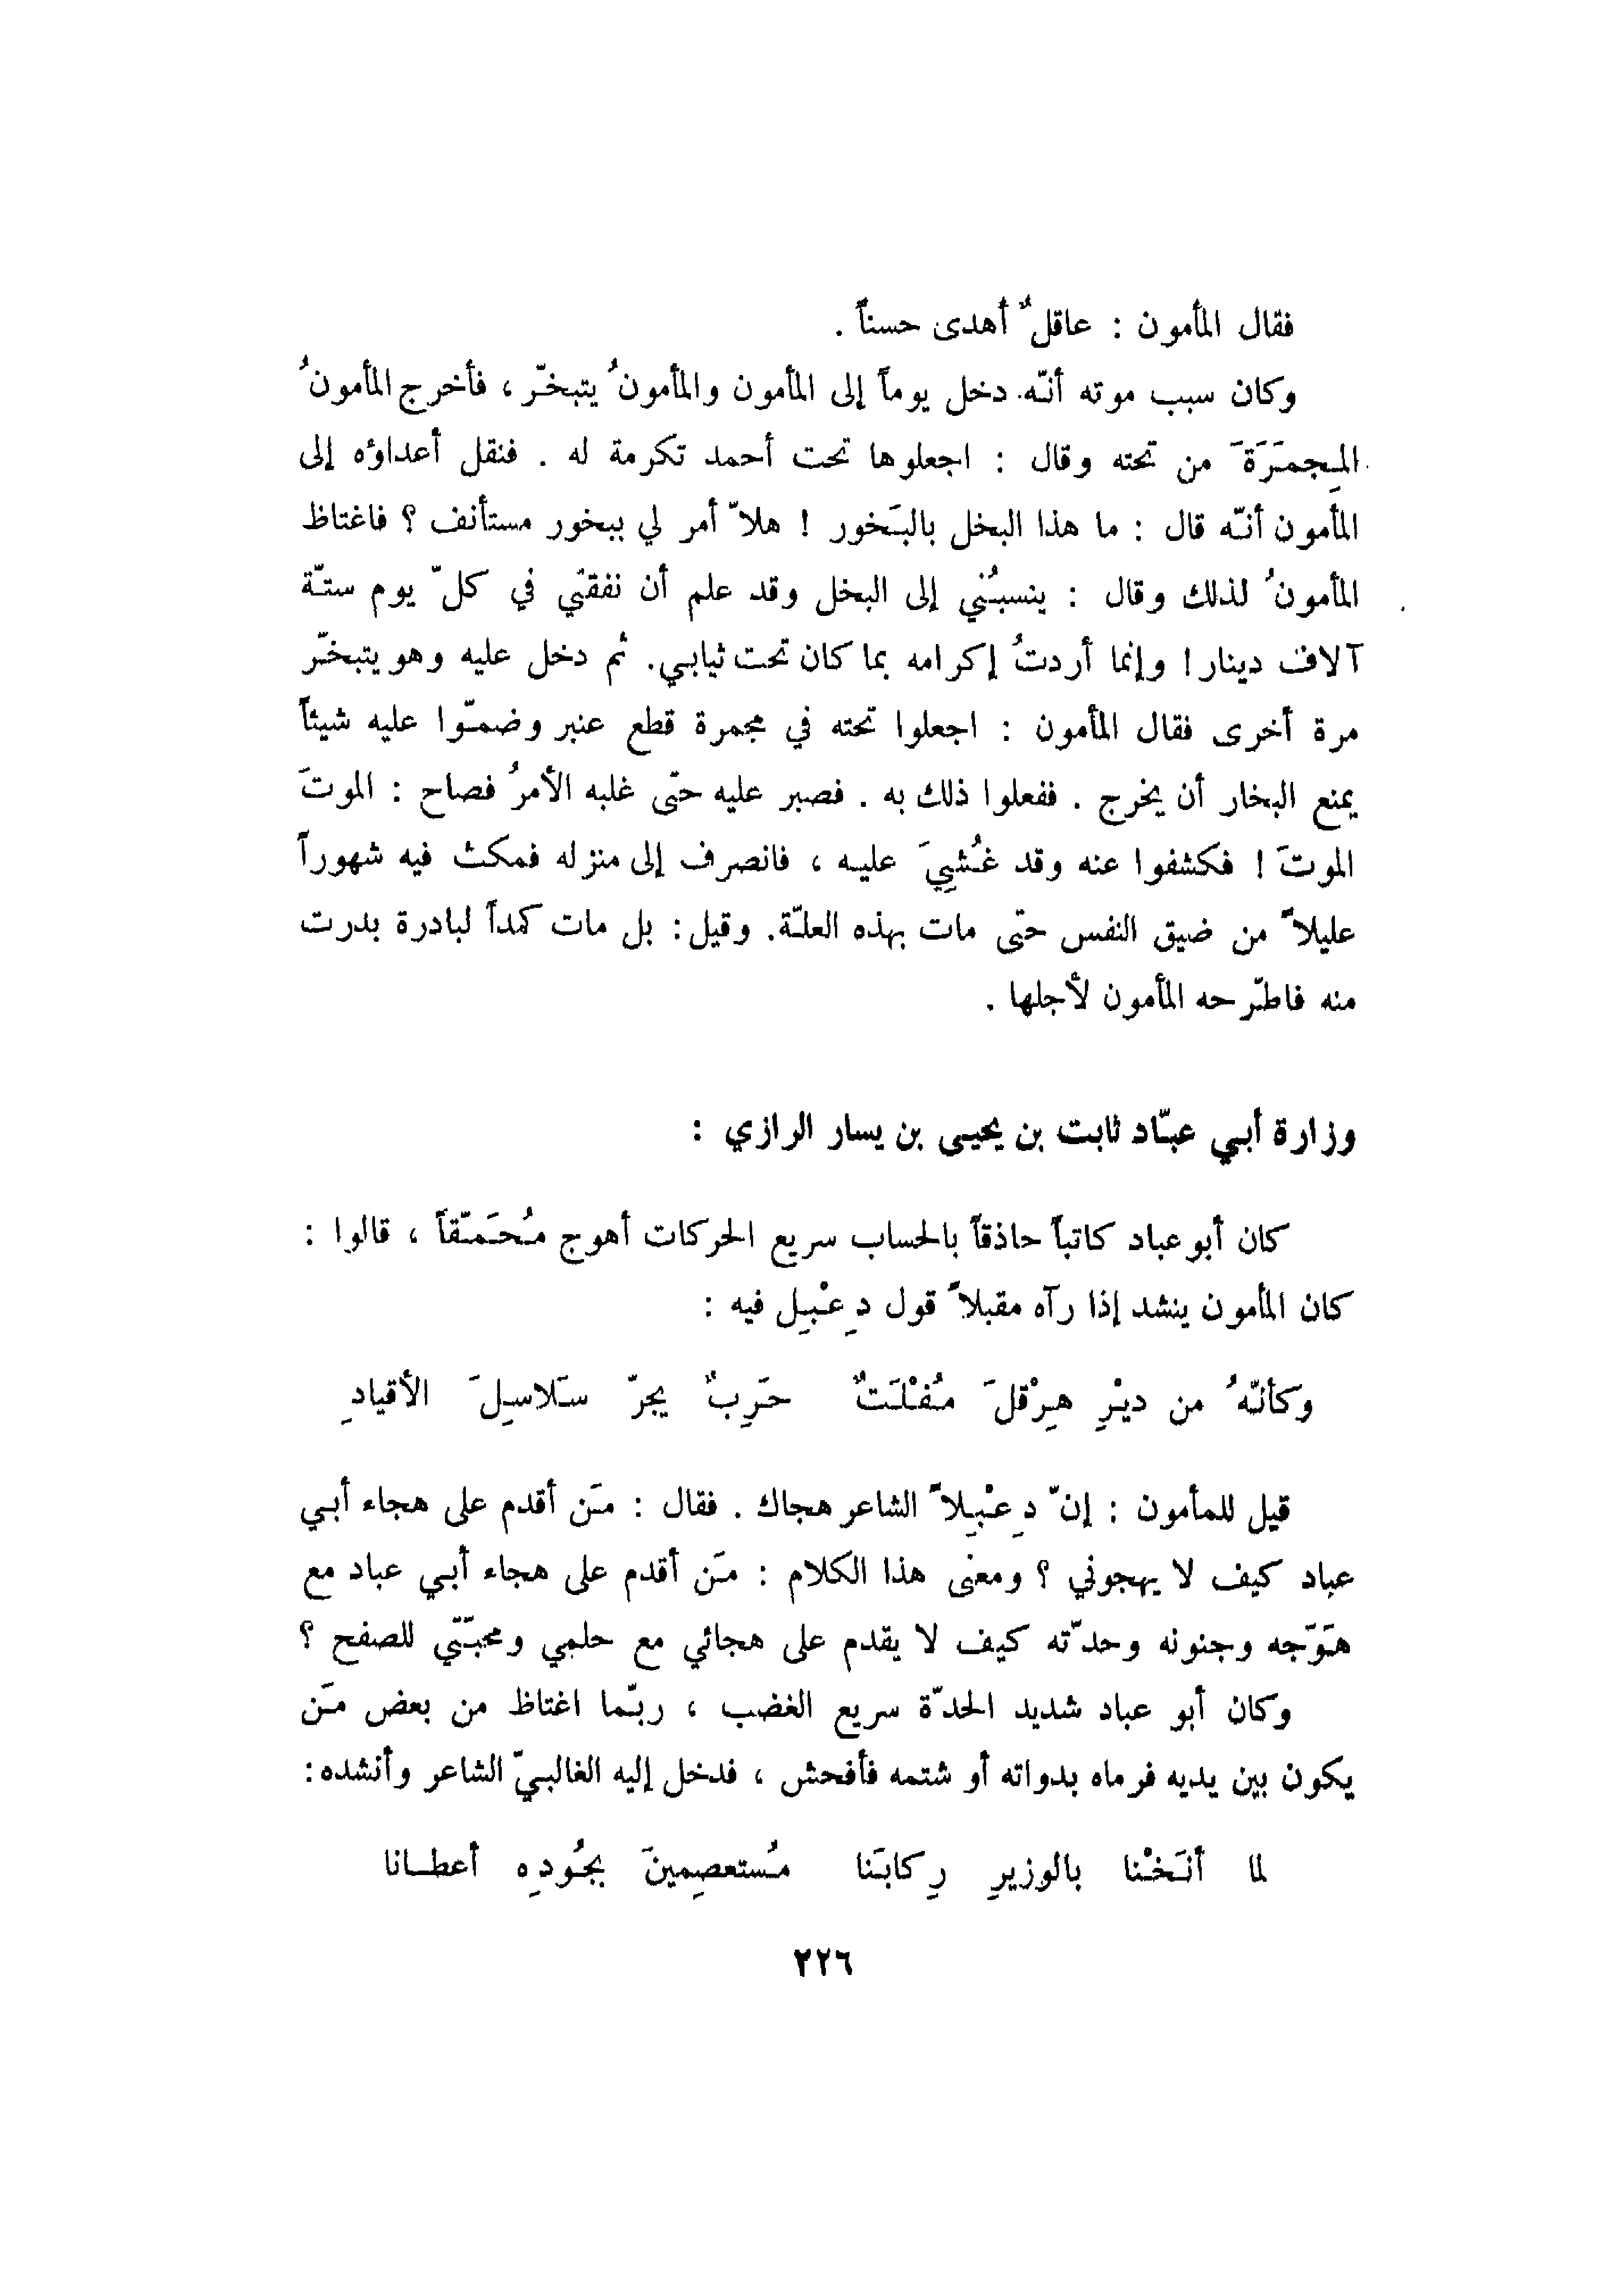 فقال المأمون : عاقلٌ أهدى حسناً .
وكان سبب موته أنّه دخل يوماً إلى المأمون والمأمونُ يتبخّر ، فأخرج المأمونُ
المِجمَرَةَ من تحته وقال : اجعلوها تحت أحمد تكرمة له . فنقل أعداؤه إلى
المأمون أنّه قال : ما هذا البخل بالبَخور ! هلاّ أمر لي ببخور مستأنف ؟ فاغتاظ
المأمونُ لذلك وقال : ينسبُني إلى البخل وقد علم أن نفقتي في كلّ يوم ستّة
آلاف دينار ! وإنما أردتُ إكرامه بما كان تحت ثيابي. ثم دخل عليه وهو يتبخّر
مرة أخرى فقال المأمون : اجعلوا تحته في مجمرة قطع عنبر وضمّوا عليه شيئاً
يمنع البخار أن يخرج . ففعلوا ذلك به . فصبر عليه حتّى غلبه الأمرُ فصاح : الموتَ
الموتَ ! فكشفوا عنه وقد غُشِيَ عليه ، فانصرف إلى منزله فمكث فيه شهوراً
عليلاً من ضيق النفس حتّى مات بهذه العلّة. وقيل : بل مات كمداً لبادرة بدرت
منه فاطّرحه المأمون لأجلها .
وزارة أبي عبّاد ثابت بن يحيى بن يسار الرازي :
كان أبو عباد كاتباً حاذقاً بالحساب سريع الحركات أهوج مُحَمّقاً ، قالوا :
كان المأمون ينشد إذا رآه مقبلاً قول دِعْبِل فيه :
وكأنّهُ من ديْرِ هِرْقلَ مُفْلَتٌ حَرِبٌ يجرّ سَلاسِلَ الأقيادِ
قيل للمأمون : إنّ دِعْبِلاً الشاعر هجاك . فقال : مَن أقدم على هجاء أبي
عباد كيف لا يهجوني ؟ ومعنى هذا الكلام : مَن أقدم على هجاء أبي عباد مع
هَوَجه وجنونه وحدّته كيف لا يقدم على هجائي مع حلمي ومحبّتي للصفح ؟
وكان أبو عباد شديد الحدّة سريع الغضب ، ربّما اغتاظ من بعض مَن
يكون بين يديه فرماه بدواته أو شتمه فأفحش ، فدخل إليه الغالبيّ الشاعر وأنشده :
لما أنَخْنا بالوزيرِ رِكابَنا مُستعصِمينَ بجُودِه أعطانا
٢٢٦